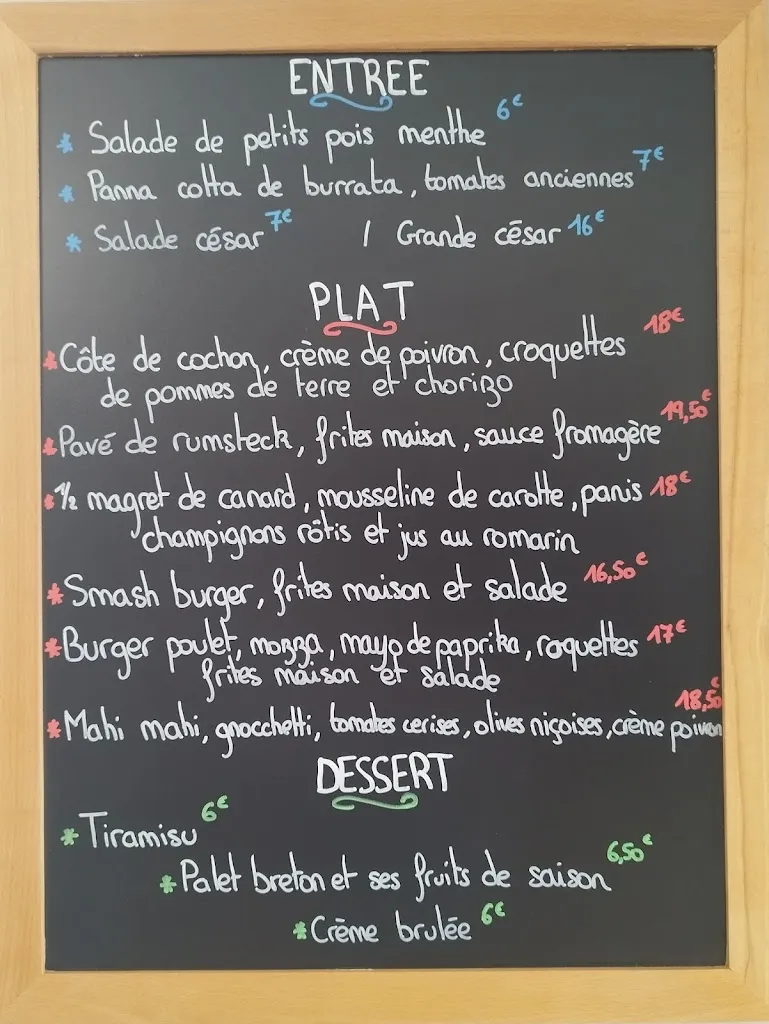 ENTREE
* Salade de petits pois menthe 6€
* Panna cotta de burrata, tomates anciennes 7€
* Salade césar 7€ / Grande césar 16€
PLAT
* Côte de cochon, crème de poivron, croquettes 18€
de pommes de terre et chorizo
* Pavé de rumsteck, frites maison, sauce fromagère 19,50€
* 1/2 magret de canard, mousseline de carotte, panis 18€
champignons rôtis et jus au romarin
* Smash burger, frites maison et salade 16,50€
* Burger poulet, mozza, mayo de paprika, roquettes 17€
frites maison et salade
* Mahi mahi, gnocchetti, tomates cerises, olives niçoises, crème poivron 18,50€
DESSERT
* Tiramisu 6€
* Palet breton et ses fruits de saison 6,50€
* Crème brulée 6€